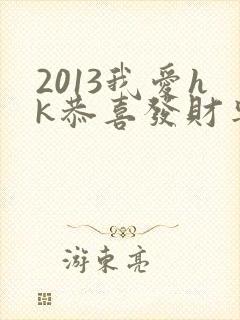 2013我愛h
k恭喜發財
游東亮